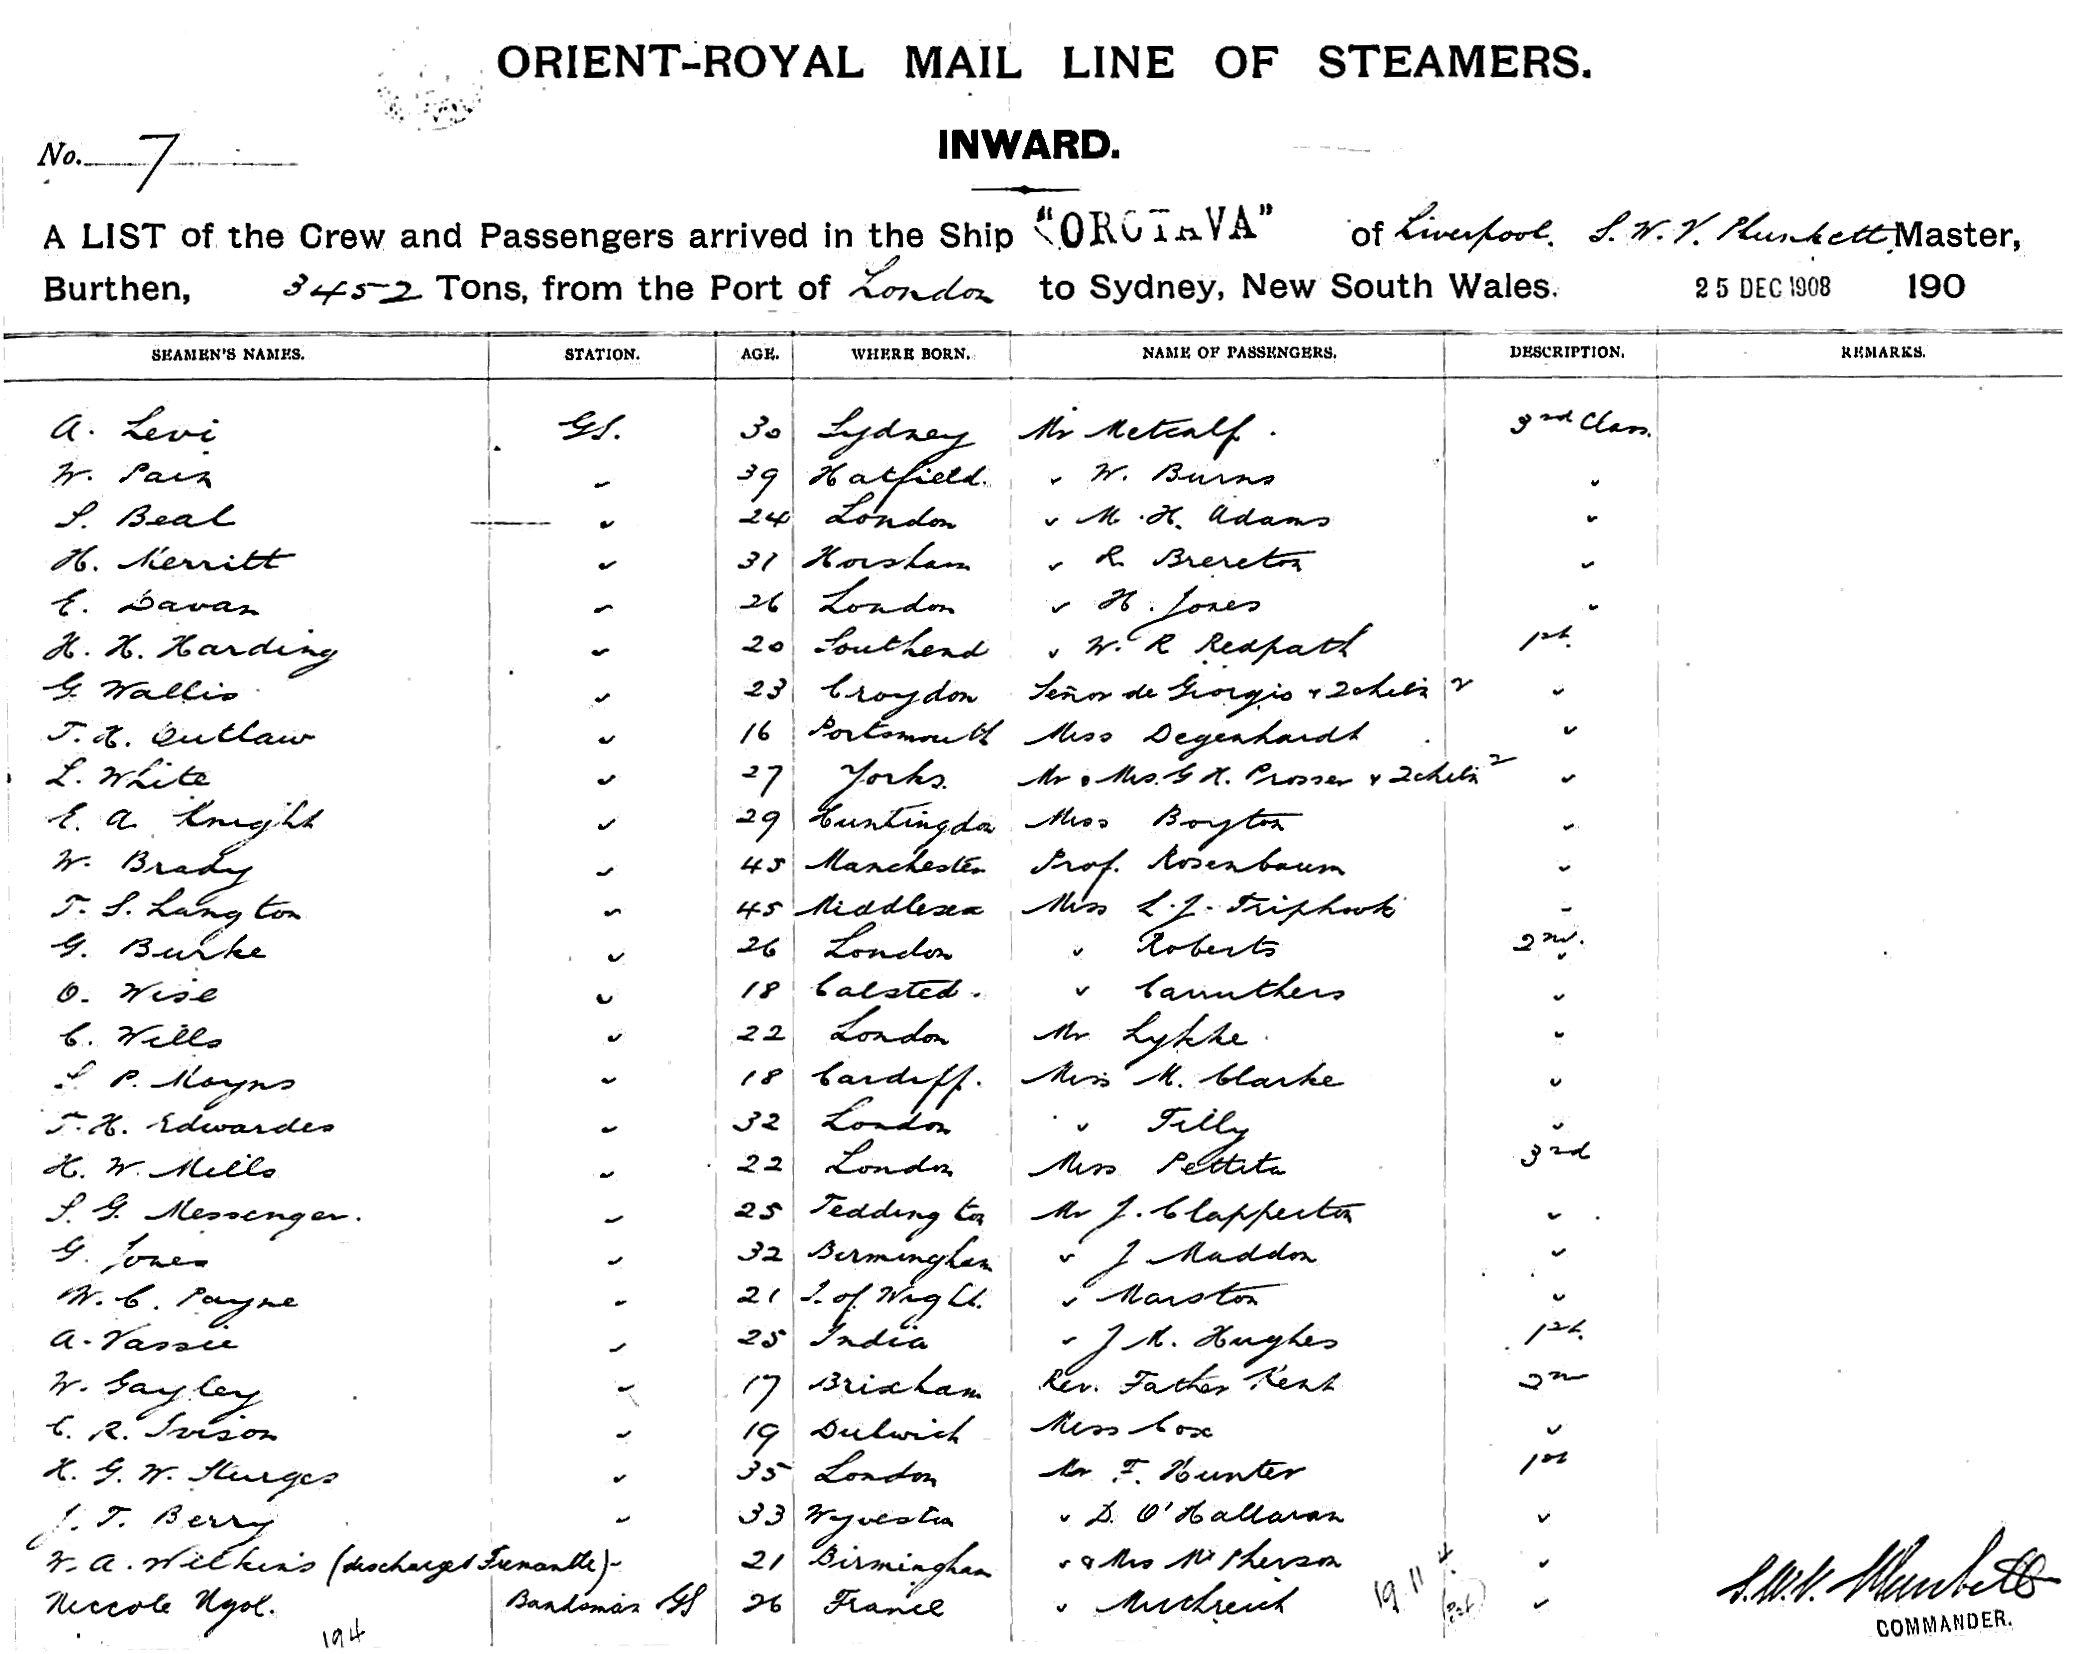 ORIENT-ROYAL MAIL LINE OF STEAMERS.
INWARD.
No. 7
A LIST of the Crew and Passengers arrived in the Ship "OROTAVA" of Liverpool, S. W. V. Plunkett, Master,
Burthen, 3452 Tons, from the Port of London to Sydney, New South Wales. 25 DEC 1908 190
SEAMEN'S NAMES. STATION. AGE. WHERE BORN. NAME OF PASSENGERS. DESCRIPTION. REMARKS.
A. Levi GS. 30 Sydney Mr Metcalf. 3rd Class.
W. Pain " 39 Hatfield. " W. Burns "
S. Beal " 24 London " M. H. Adams "
H. Merritt " 31 Horsham " R. Brereton "
E. Davan " 26 London " H. Jones "
H. H. Harding " 20 Southend " W. R Redpath 1st.
G. Wallis " 23 Croydon Señor de Giorgio & 2 chldn 2 "
T. H. Outlaw " 16 Portsmouth Miss Degenhardt "
L. White " 27 Yorks. Mr & Mrs. G H. Prosser & 2 chldn 2 "
E. A. Knight " 29 Huntingdon Miss Boyton "
W. Brady " 45 Manchester Prof. Rosenbaum "
T. S. Langton " 45 Middlesex Miss L. J. Triphook "
G. Burke " 26 London " Roberts 2nd.
O. Wise " 18 Calsted. " Carruthers "
C. Wills " 22 London Mr Lykke "
S. P. Mayns " 18 Cardiff. Miss M. Clarke "
T. H. Edwardes " 32 London " Tilly "
H. W. Mills " 22 London Miss Pettita 3rd
S. G. Messenger. " 25 Teddington Mr J. Clapperton "
G. Jones " 32 Birmingham " J Maddon "
W. C. Payne " 21 I. of Wight. " Marston "
A. Vassie " 25 India " J M. Hughes 1st.
W. Gayley " 17 Brixham Rev. Father Kent 2nd
C. R. Ivison " 19 Dulwich Miss Cox "
H. G. W. Sturges " 35 London Mr F. Hunter 1st
J. T. Berry " 33 " D. O'Hallaran "
W. A. Wilkins (discharged Fremantle) " 21 Birmingham " & Mrs McPherson "
Niccole Ugol. Bandsman GS 26 France " "
194 19 11 4
S. W. V. Plunkett
COMMANDER.